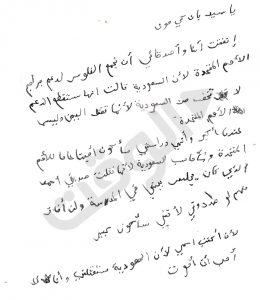 يا سيد بان كي مون
إتفقت أنا وأصدقائي أن نجمع الفلوس لدعم برامج
الأمم المتحدة لأن السعودية قالت انها ستقطع الدعم
لا تخف من السعودية لأنها تقتل اليمن وليس
الأمم المتحدة
عندما أكبر وأنهي دراستي سأكون أمينا عاما للأمم
المتحدة و السعودية لأنها قتلت صديقي أحمد
الذي كان يجلس بجنبي في المدرسة ولن أخاف
منهم لو هددوني لأنني سأكون كبير
لأن أكتب اسمي لأن السعودية ستقتلني وأنا لا
أحب أن أموت